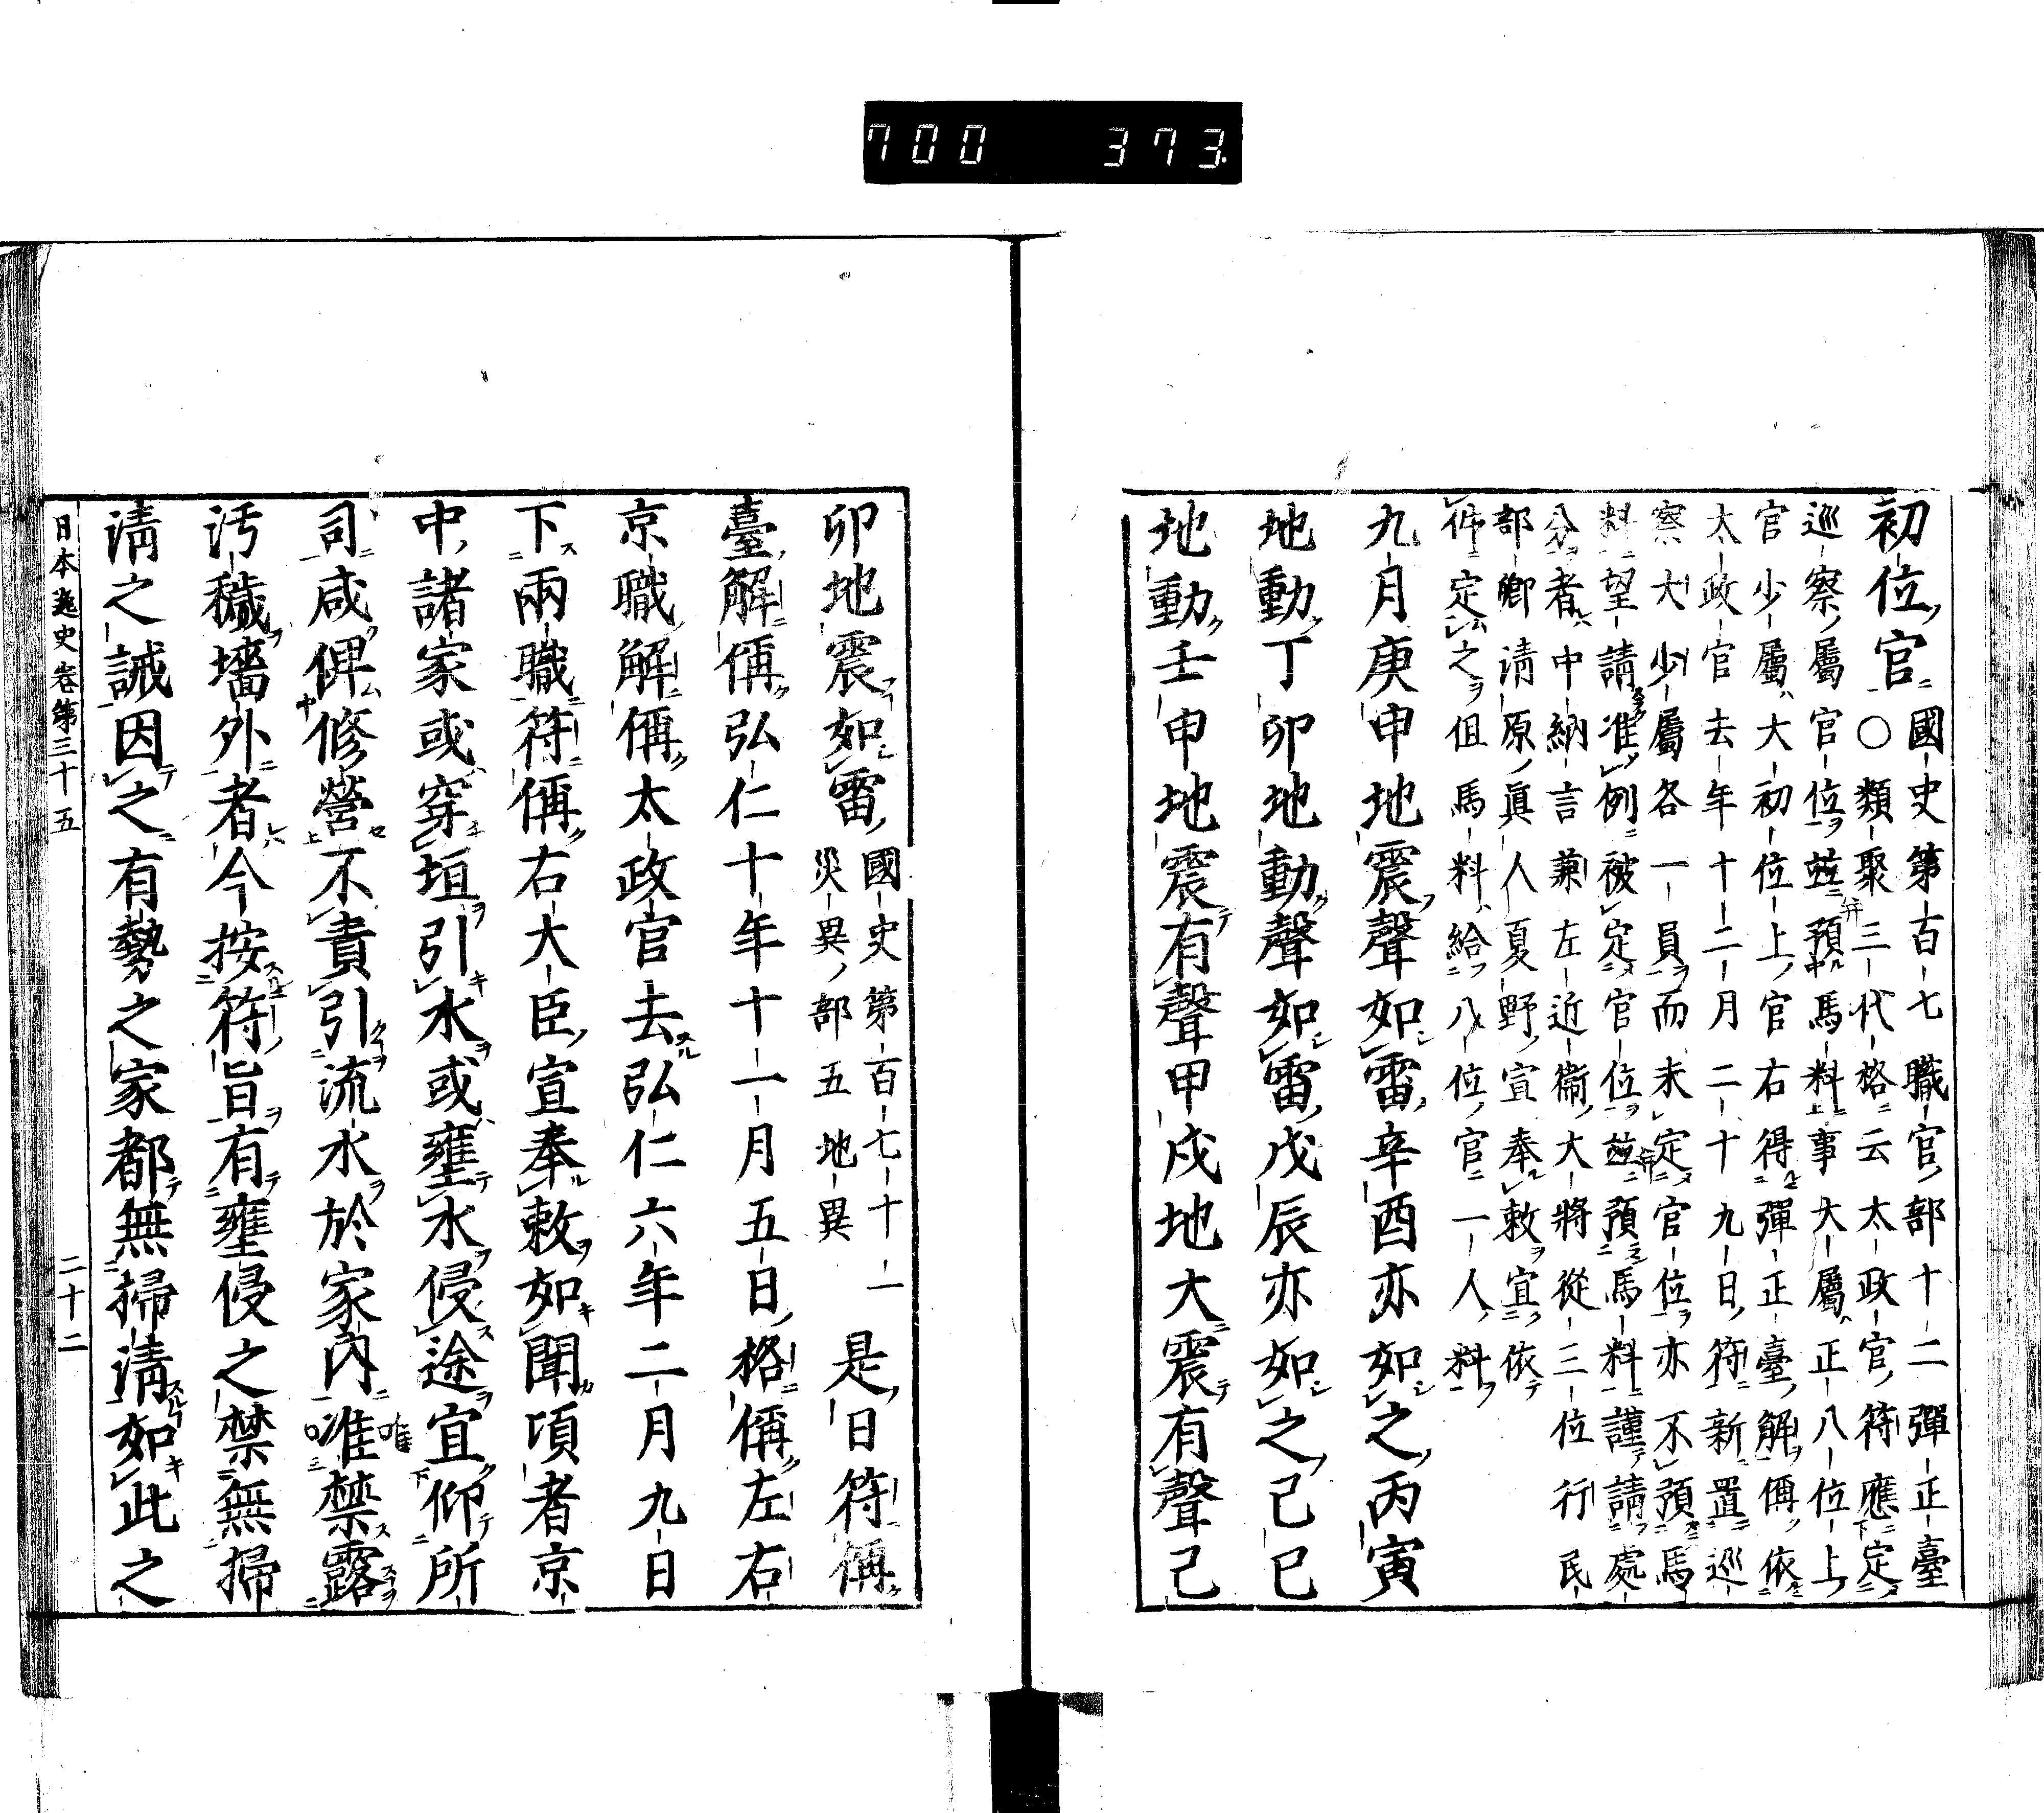 700 373
初位官 國史第百七職官部十二彈正臺
○類聚三代格云太政官符應定
巡察屬官位並預馬料事大屬正八位上
官少屬大初位上官右得彈正臺解偁依
太政官去年十二月二十九日符新置巡
察大少屬各一員而未定官位亦不預馬
料望請准例被定官位並預馬料謹請處
分者中納言兼左近衞大將從三位行民
部卿清原眞人夏野宣奉敕宜依
件定之但馬料給八位官一人料
九月庚申地震聲如雷辛酉亦如之丙寅
地動丁卯地動聲如雷戊辰亦如之己巳
地動壬申地震有聲甲戌地大震有聲己
卯地震如雷 國史第百七十一
災異部五 地異 是日符偁
臺解偁弘仁十年十一月五日格偁左右
京職解偁太政官去弘仁六年二月九日
下兩職符偁右大臣宣奉敕如聞項者京
中諸家或穿垣引水或壅水侵途宜仰所
司咸俾修營不責引流水於家內准禁露
唯
汚穢墻外者今按符旨有壅侵之禁無掃
清之誡因之有勢之家都無掃清如此之
日本逸史卷第三十五 二十二